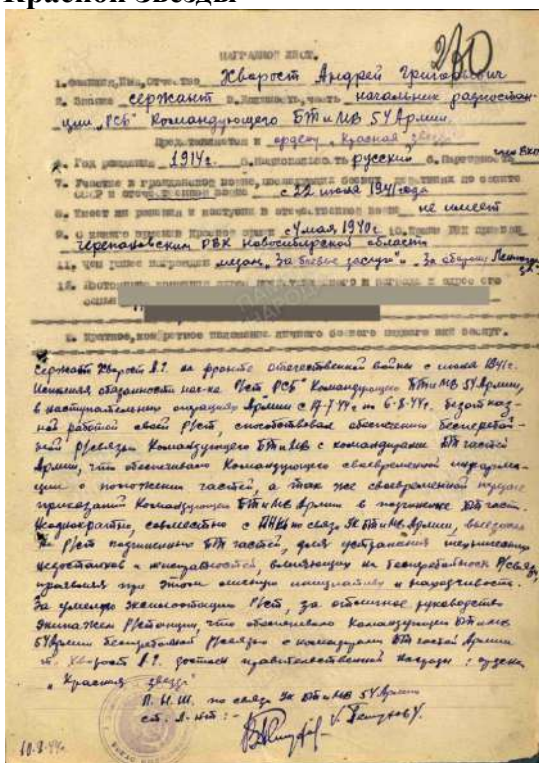 Красной Звезды
НАГРАДНОЙ ЛИСТ.
1. Фамилия, Имя, Отчество Хворост Андрей Григорьевич
2. Звание сержант 3. Должность, часть начальник радиостан-
ции „РСБ" Командующего БТ и МВ 54 Армии.
Представляется к ордену „Красная звезда"
4. Год рождения 1914г. 5. Национальность русский 6. Партийность
7. Участие в гражданской войне, последующих боевых действиях по защите
СССР и отечественной войне с 22 июня 1941 года
8. Имеет ли ранения и контузии в отечественной войне не имеет
9. С какого времени в Красной армии с 4 мая 1940г. 10. Каким РВК призван
Черепановским РВК Новосибирской области
11. Чем ранее награжден медаль „За боевые заслуги" и „За оборону
1. Краткое, конкретное изложение личного боевого подвига или заслуг.
Сержант Хворост А.Г. на фронте отечественной войны с июня 1941г.
Исполняя обязанности нач-ка Р/ст „РСБ" Командующего БТ и МВ 54 Армии,
в наступательных операциях Армии с 17-7-44г. по 6-8-44г. безотказ-
ной работой своей Р/ст, способствовал обеспечению бесперебой-
ной Р/связи Командующего БТ и МВ с командирами БТ частей
Армии, что обеспечивало Командующего своевременной информаци-
ции о положении частей, а так же своевременной
приказаний Командующего БТ и МВ Армии в подчиненные БТ части.
Неоднократно, совместно с ПНШ по связи УК БТ и МВ Армии, выезжал
на Р/ст подчиненных БТ частей, для устранения технических
недостатков и неисправностей, влияющих на бесперебойность Р/связи,
проявляя при этом инициативу и находчивость.
За умелую эксплоатацию Р/ст, за отличное руководство
экипажем Р/станции, что обеспечивало Командующему БТ и МВ
54 Армии бесперебойной Р/связью с командирами БТ частей Армии
Хворост А.Г. достоин правительственной награды: ордена
„Красная звезда"
П.Н.Ш. по связи УК БТ и МВ 54 Армии
ст. л-нт: -
10.8.44г.